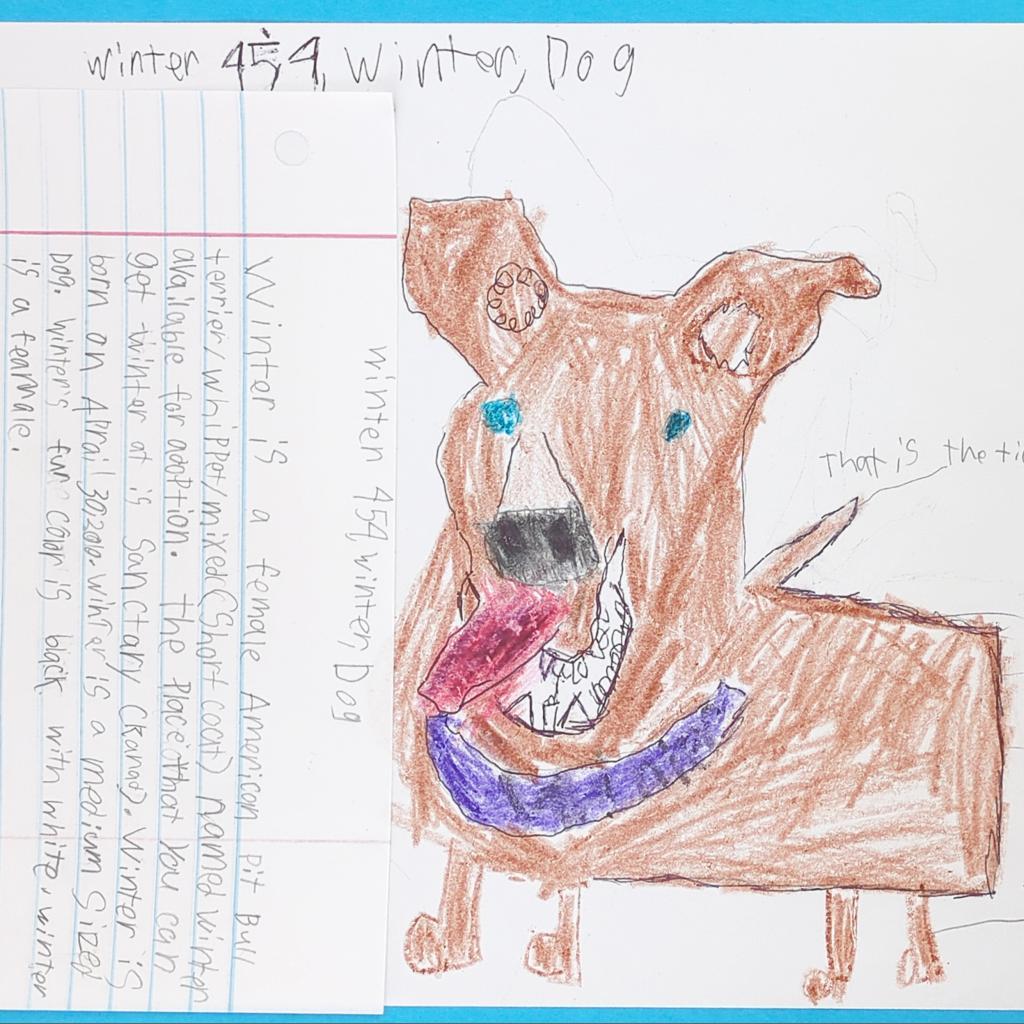 winter 454, winter, Dog
winter 454, winter, Dog
Winter is a female American Pit Bull
terrier/whipper/mixed(Short coat) named winter
available for adoption. The place that you can
get winter at is Sanctary (Kanab). Winter is
born on 30, 2020. winter is a medium Sized
Dog. winter's is back with white. winter
is a feamale.
That is the